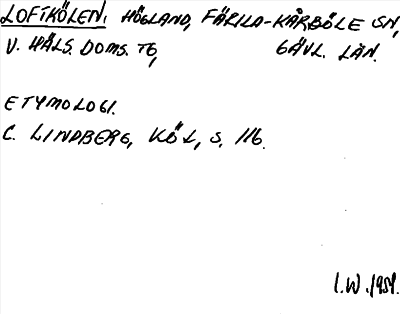 LOFTKÖLEN. HÖGLAND, FÄRILA-KÅRBÖLE SN,
V. HÄLS. DOMS. TG, GÄVL. LÄN.
ETYMOLOGI.
C. LINDBERG, KÖL, S. 116.
I.W. 1959.